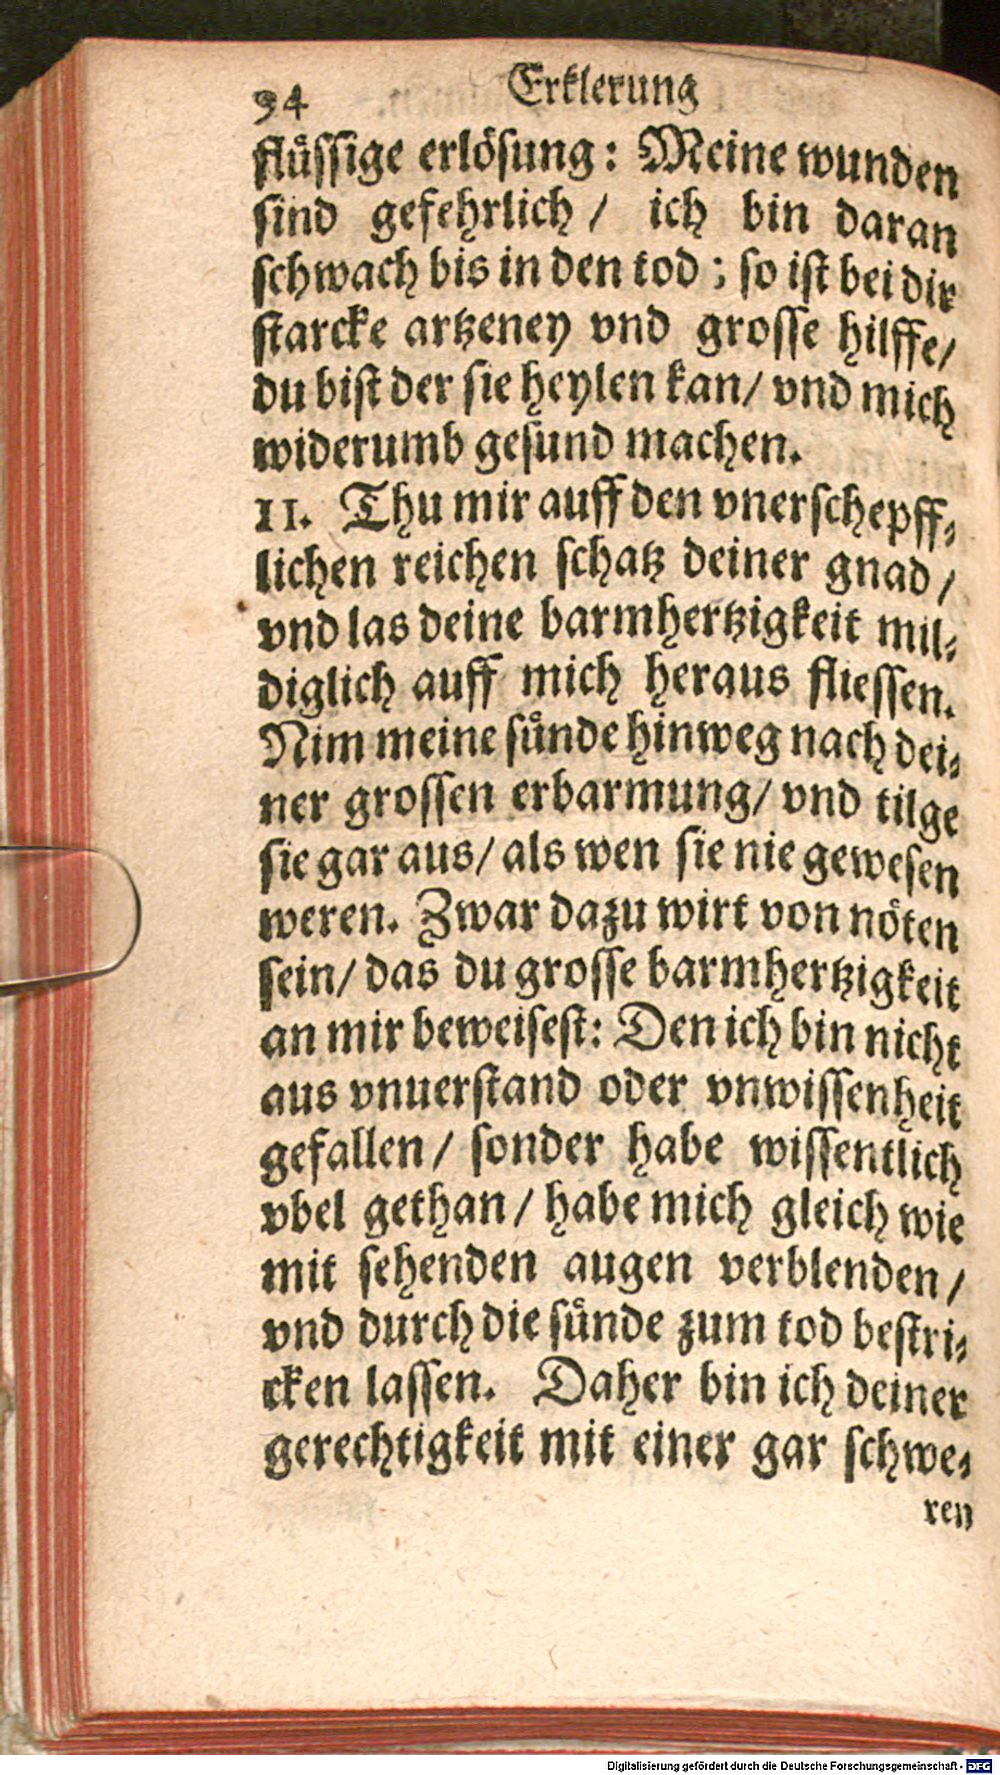 94 Erklerung
flüssige erlösung: Meine wunden
sind gefehrlich / ich bin daran
schwach bis in den tod; so ist bei dir
starcke artzeney vnd grosse hilffe/
du bist der sie heylen kan/ vnd mich
widerumb gesund machen.
11. Thu mir auff den vnerschepff-
lichen reichen schatz deiner gnad /
vnd las deine barmhertzigkeit mil-
diglich auff mich heraus fliessen.
Nim meine sünde hinweg nach dei-
ner grossen erbarmung/ vnd tilge
sie gar aus/ als wen sie nie gewesen
weren. Zwar dazu wirt von nöten
sein/ das du grosse barmhertzigkeit
an mir beweisest: Den ich bin nicht
aus vnuerstand oder vnwissenheit
gefallen/ sonder habe wissentlich
vbel gethan/ habe mich gleich wie
mit sehenden augen verblenden/
vnd durch die sünde zum tod bestri-
cken lassen. Daher bin ich deiner
gerechtigkeit mit einer gar schwe-
ren
Digitalisierung gefördert durch die Deutsche Forschungsgemeinschaft - DFG